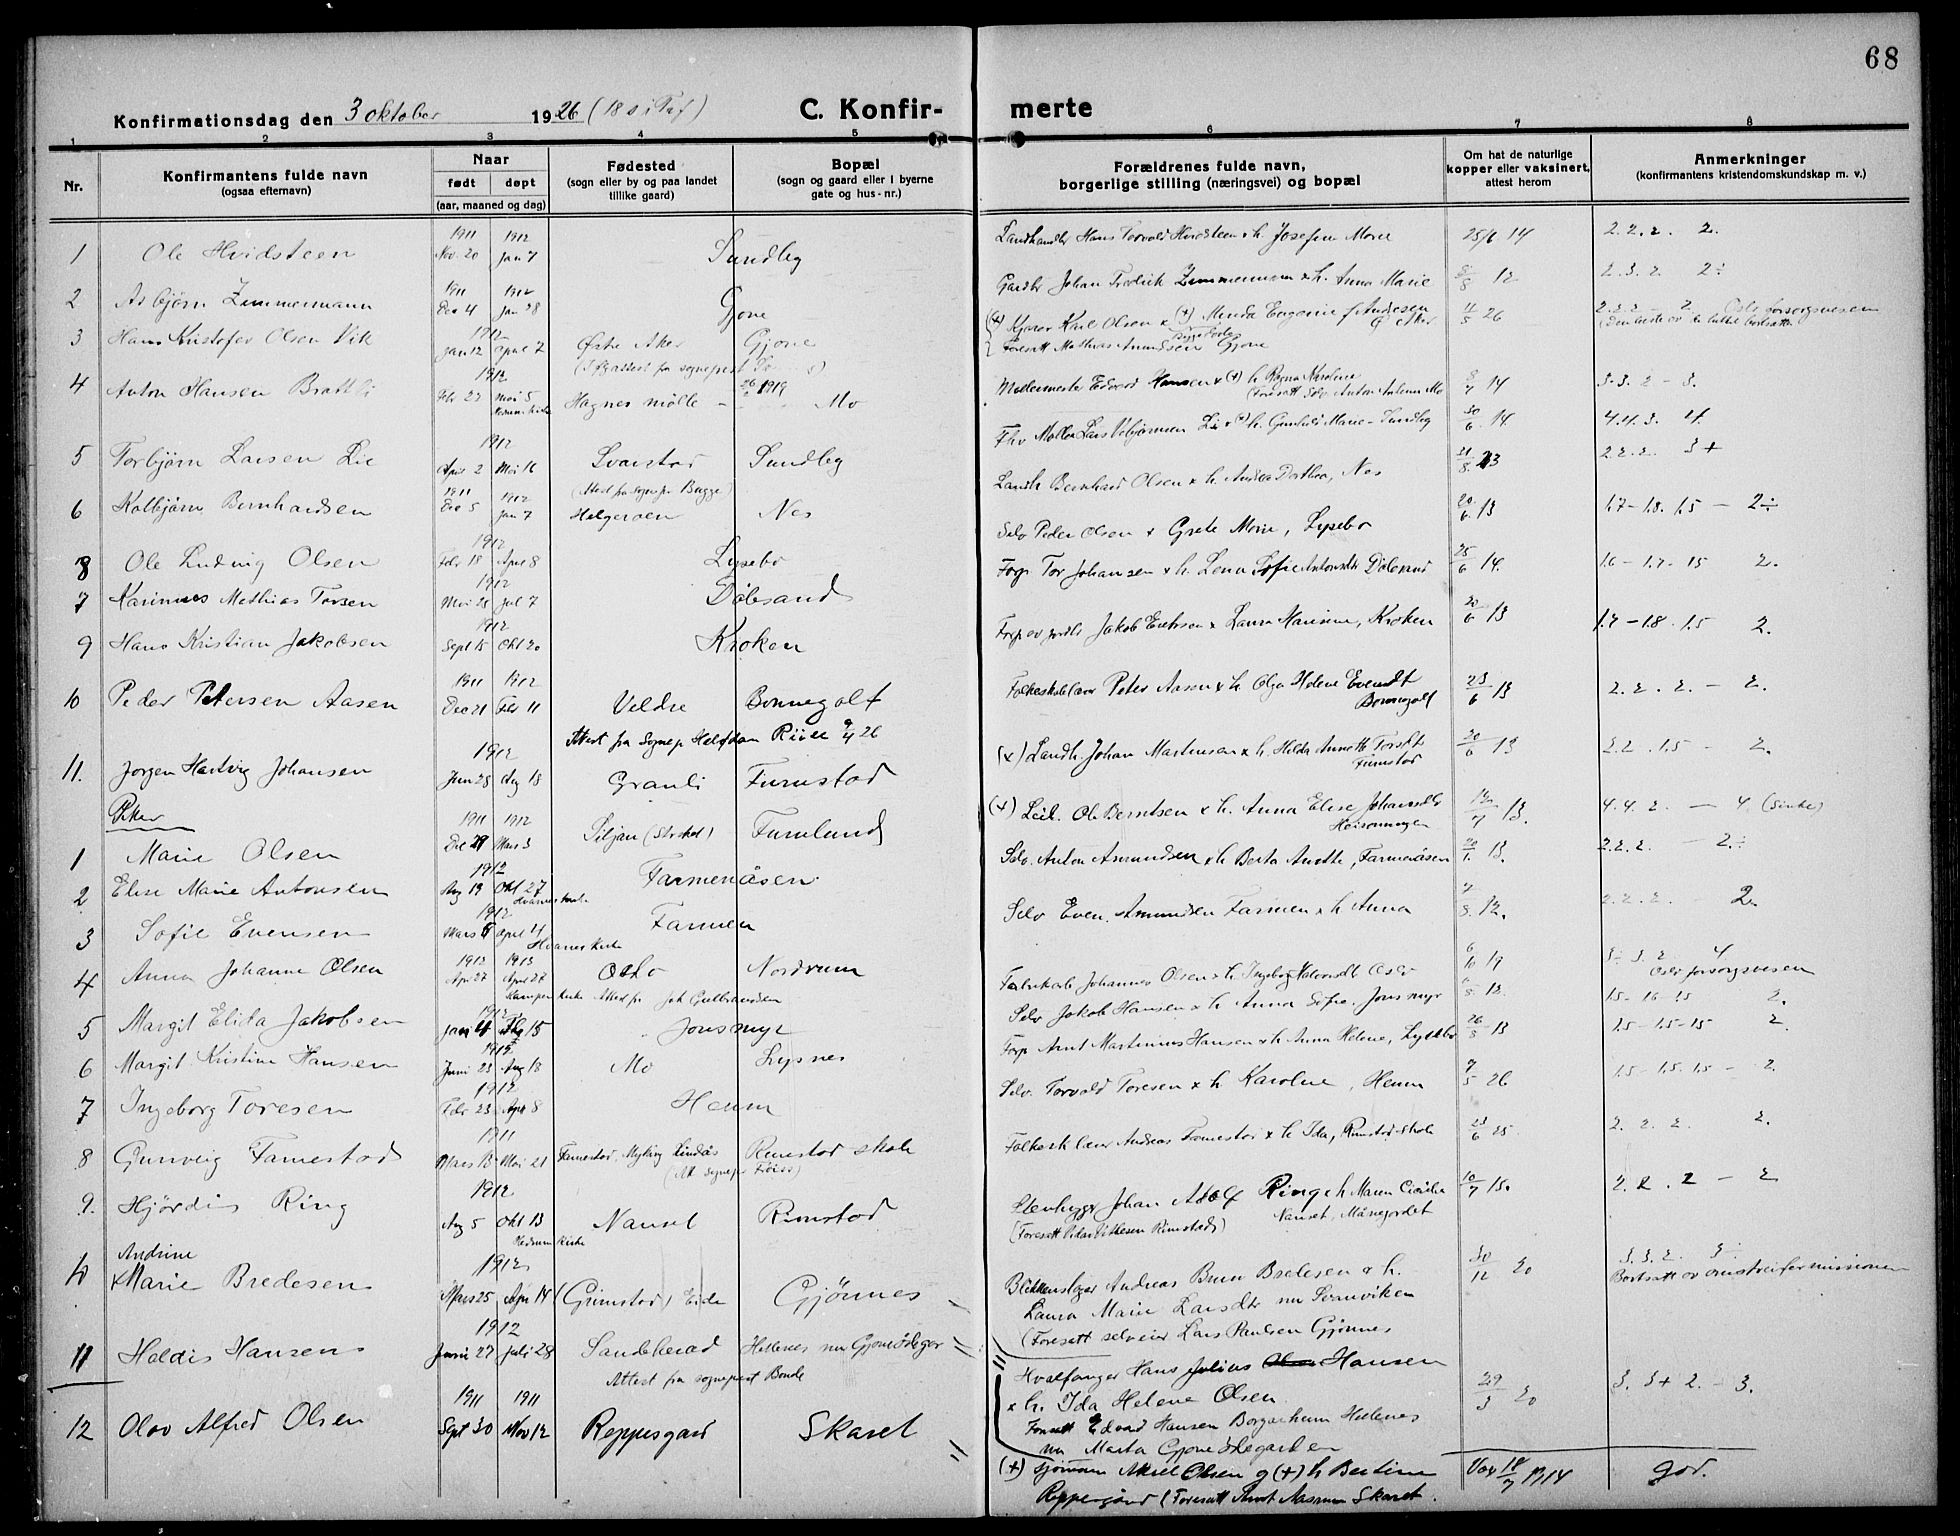 68
Konfirmationsdag den 3 oktober 1926 (18 s i Tref)
C. Konfir- merte
1 2 3 4 5 6 7 8
Nr.
Konfirmantens fulde navn
(ogsaa efternavn)
Naar
født døpt
(aar, maaned og dag)
Fødested
(sogn eller by og paa landet
tillike gaard)
Bopæl
(sogn og gaard eller i byerne
gate og hus-nr.)
Forældrenes fulde navn,
borgerlige stilling (næringsvei) og bopæl
Om hat de naturlige
kopper eller vaksinert,
attest herom
Anmerkninger
(konfirmantens kristendomskundskap m. v.)
1911 1912
1 Ole Hvidsteen Nov. 20 Jan 7 Sundby Landhandler Hans Torvald Hvidsteen & h. Josefine Marie 25/6 14 2. 2. 2. 2.
1911 1912
2 Asbjørn Zimmermann Dec 4 Jan 28 Gjone Gardbr Johan Fredrik Zimmermann & h. Anna Marie 8/8 12 2. 3. 2. 2÷
1912
3 Hans Kristofer Olsen Vik Jan 12 April 7 Østre Aker Gjone (+) Karl Olsen & (+) Eugenie f. Andresen 11/5 26 2. 2. 2 - 2. Oslo forsorgsvesen
Foresatt Mathias Amundsen Gjone
1912
4 Anton Hansen Brattli Febr 27 Mai 5 Hagnes mølle Mo Møllemester Edvard Hansen & (+) h. Ragna Karoline 8/7 14 3. 3. 2 - 3.
(Foresatt Selv. Anton Antonsen Mo
1912
5 Torbjørn Larsen Lie April 2 Mai 16 Svarstad Sundby Fhv Møller Lars Lie & h. Gunhild Marie - Sundby 30/6 14 4. 4. 3. 4.
1911 1912
6 Kolbjørn Bernhardsen Dec 5 Jan 7 Helgeroen Nes Landh. Bernhard Olsen & h. Andrea Dorthea, Nes 21/8 13 2. 2. 2. 3+
1912
8 Ole Ludvig Olsen Febr 18 April 8 Lysebo Selv Peder Olsen & Grete Marie, Lysebo 20/6 13 1.7 - 1.8. 1.5 - 2÷
1912
7 Karinius Mathias Torsen Mai 25 Jul 7 Dølesand Forp. Tor Johansen & h. Lena Sofie Antonsdtr Dølesand 25/6 14. 1.6 - 1.7 - 15 2.
1912
9 Hans Kristian Jakobsen Sept 15 Okt 20 Kroken Forp av jords Jakob Evensen & Laura Marinne, Kroken 20/6 13 1.7 - 1.8. 1.5 2.
1911 1912
10 Peder Petersen Aasen Dec 21 Febr 11 Veldre Bonnegolt Folkeskolelærer Peter Aasen & h. Olga Helene Evensdt 23/6 13 2. 2. 2. - 2.
Bonnegolt
Attest fra Sognep Halfdan Riise 9/4 26
1912
11. Jørgen Hartvig Johansen Jun 28 Aug 18 Granli Furustad (+) Landh. Johan Martinsen & h. Hilda Annette Torsdt 20/6 13 2.2. 1.5 - 2.
Furustad
Piker
1911 1912
1 Marie Olsen Dec 29 Mars 3 Siljan Furulund (+) Leil. Ole Berntsen & h. Anna Elise Johansdtr 12/7 13. 4. 4. 2. - 4. (Sinke)
1912
2 Elise Marie Antonsen Aug 19 Okt 27 Farmenåsen Selv. Anton Amundsen & h Berta Anette, Farmenåsen 20/1. 13. 2. 2. 2. - 2.÷
1912
3 Sofie Evensen Mars 5 April 4 Farmen Selv Even Amundsen Farmen & h Anna 7/8. 12. 2. 2. 2. - 2.
Hvarnes kirke
1912 1913
4 Anna Johanne Olsen Apr 27 April 27 Oslo Nordrum Fabrikarb. Johannes Olsen & h. Ingeborg Halvorsdt Oslo 6/10 19 3÷ 3. 2 4
Oslo forsorgsvesen
Kampen kirke Attest fr Joh Gulbrandsen
1912
5 Margit Elida Jakobsen Jan 4 Feb 15 Jonsmyr Selv Jakob Hansen & h Anna Sofie, Jonsmyr 8. 12. 15 - 16 - 15 2.
1912
6 Margit Kristine Hansen Juni 23 Aug 18 Mo Lysnes Forp Arnt Martinius Hansen & h Anna Helene, 26/8 13 1.5 - 1.5 - 15 2.
1912
7 Ingeborg Toresen Febr 23 Apr 8 Heum Selv. Torvald Toresen & h Karoline, Heum 7/5 26 1.5 - 1.5. 1.5 - 2.
1911
8 Gunveig Famestad Mars 13 Mai 21 Famestad, Myking Lindås Rimstad skole Folkesk lærer Andreas Famestad & h Ida, Rimstad skole 23/6 25 2. 2. 2. 2.
1912
9. Hjørdis Ring Aug 5 Okt 13 Nanset Rimstad Stenhugger Johan Adolf Ring & h Maren Cecilie 10/7 15. 2. 2. 2 - 2
Nanset, Månejordet
Hedrum kirke (Foresatt Vithesen Rimstad)
Andrine 1912
10 x Marie Bredesen Mars 25 Apr 14 (Grimstad) Eide Gjønnes Blikkenslager Andreas Bredesen & h. 30/12 20 3. 3. 2. 3÷
Bortsatt av omstreifermissionen
Laura Marie Larsdtr nu Svanviken
(Foresatt selveier Lars Paulsen Gjønnes
1912
11 Haldis Hansen Junie 27 Juli 28 Sandeherad Hellenes nu Gjone ødegar Hvalfanger Hans Julius Hansen
Attest fra sogneprest Bonde & h. Ida Helene Olsen 29/3 20 3. 3+ 2. - 3.
Foresatt Edvard Hansen Borgarheim Hellenes
nu Marta Gjone ødegarden
1911 1911
12 Olav Alfred Olsen Sept 30 Nov 12 Reppesgard Skaret (+) sjømann Aksel Olsen og (+) h Bertine Vax 18/7 1914 god.
(Foresatt Skaret.